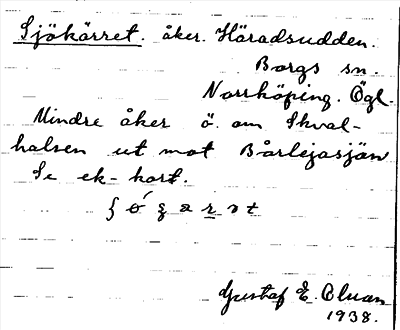 Sjökärret. åker. Häradsudden.
Borgs sn.
Norrköping. Ögl.
Mindre åker ö. om Skval-
halsen ut mot Bårlejasjön
Se ek-kort.
Gustaf E. Oluan
1938.